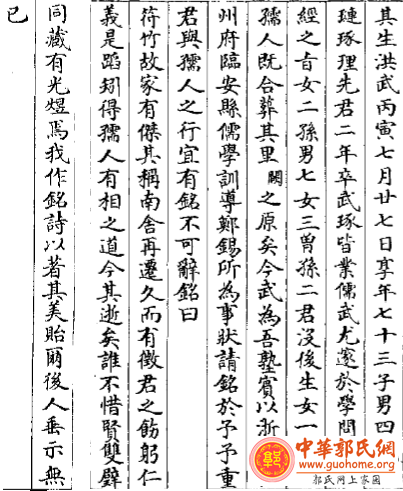 其生洪武丙寅七月廿七日享年七十三子男四
璉琢理先君二年卒武琢皆業儒武尤邃於學問
經之旨女二孫男七女三曽孫二君没後生女一
孺人既合葬其里闕之原矣今武為吾塾賓以浙
州府臨安縣儒學訓導鄭錫所為事狀請銘於予予重
君與孺人之行宜有銘不可辭銘曰
符竹故家有傑其稱南舎再遷久而有徴君之飭躬仁
義是蹈矧得孺人有相之道今其逝矣誰不惜賢雙璧
同藏有光煜焉我作銘詩以著其美貽爾後人垂示無
已
中華郭氏網
www.guohome.org
郭氏网上家园